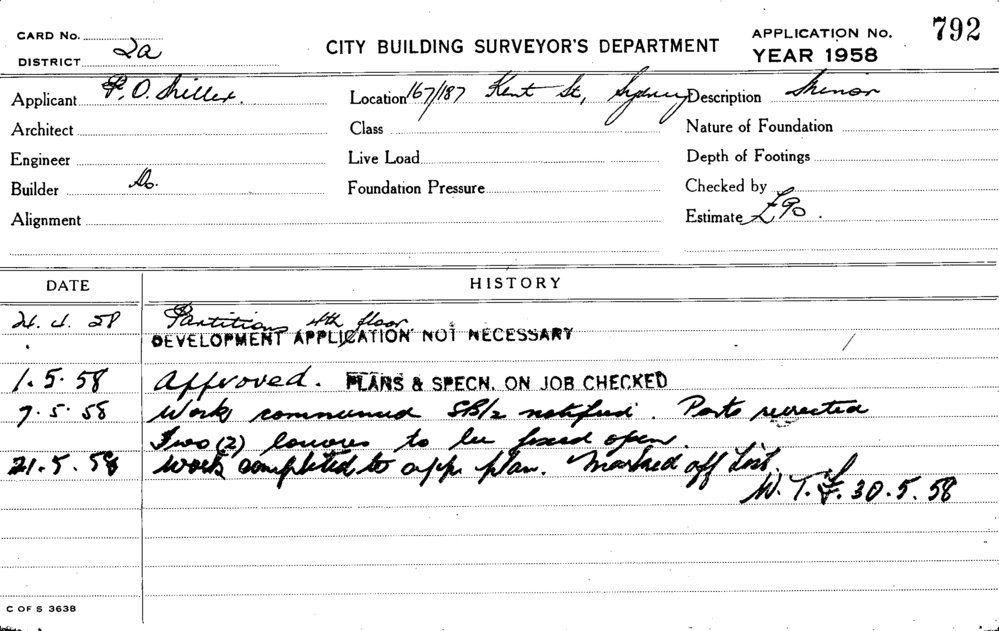 CARD No.
DISTRICT 2a
CITY BUILDING SURVEYOR'S DEPARTMENT
APPLICATION No. 792
YEAR 1958
Applicant P. O. Miller.
Location 167/187 Kent St, Sydney
Description Minor
Architect
Class
Nature of Foundation
Engineer
Live Load
Depth of Footings
Builder Do.
Foundation Pressure
Checked by
Alignment
Estimate £90.
DATE HISTORY
21. 4. 58 Partitions 4th floor
DEVELOPMENT APPLICATION NOT NECESSARY
1. 5. 58 Approved. PLANS & SPECN. ON JOB CHECKED
7. 5. 58 Work commenced notified. Parts
Two (2) louvres to be fixed open.
21. 5. 58 Work completed to app. plan. Marked off List.
W. T. 30. 5. 58
C OF S 3638